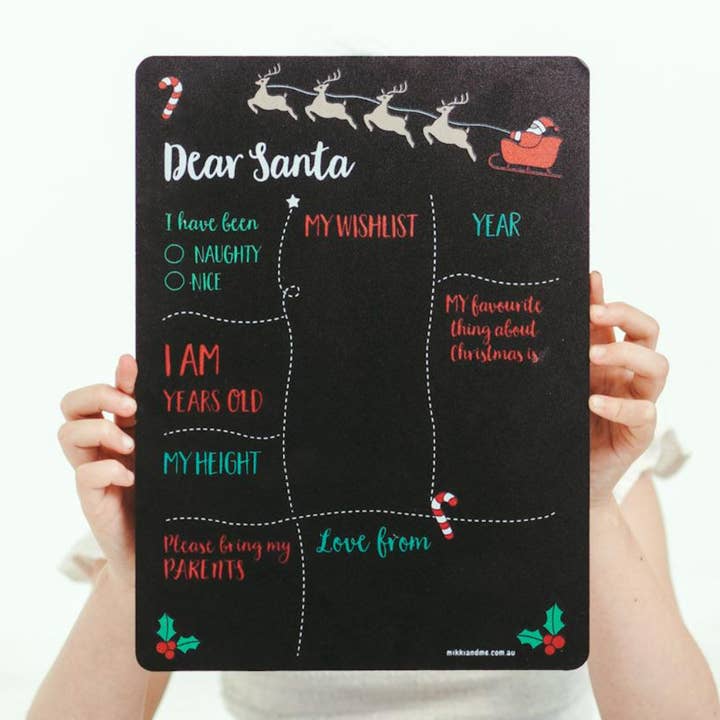 Dear Santa
I have been
NAUGHTY
NICE
MY WISHLIST
YEAR
MY favourite
thing about
Christmas is
I AM
YEARS OLD
MY HEIGHT
Please bring my
PARENTS
Love from
mikkiandme.com.au